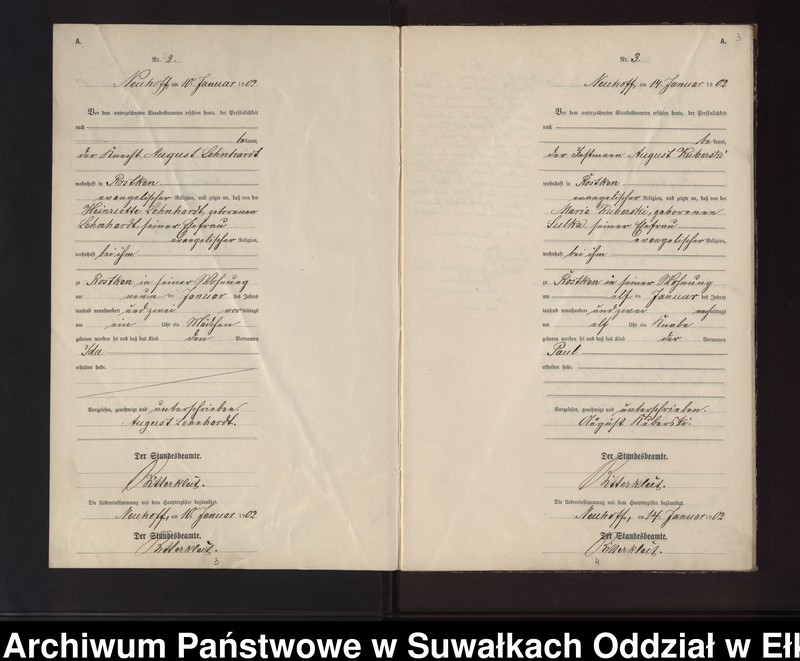 A.
Nr. 2.
Neuhoff, am 10. Januar 1902.
Vor dem unterzeichneten Standesbeamten erschien heute, der Persönlichkeit
nach
bekannt,
der Knecht August Lehnhardt
wohnhaft in Rostken
evangelischer Religion, und zeigte an, daß von der
Heinriette Lehnhardt, geborenen
Lehnhardt, seiner Ehefrau
evangelischer Religion,
wohnhaft bei ihm
zu Rostken in seiner Wohnung
am neun ten Januar des Jahres
tausend neunhundert und zwei vormittags
um ein Uhr ein Mädchen
geboren worden sei und daß das Kind den Vornamen
Ida
erhalten habe.
Vorgelesen, genehmigt und unterschrieben.
August Lehnhardt.
Der Standesbeamte.
Bitterkleit.
Die Uebereinstimmung mit dem Hauptregister beglaubigt.
Neuhoff, am 10. Januar 1902
Der Standesbeamte.
Bitterkleit.
3
A.
3
Nr. 3.
Neuhoff, am 14. Januar 1902
Vor dem unterzeichneten Standesbeamten erschien heute, der Persönlichkeit
nach
bekannt,
der Instmann August Kuberski
wohnhaft in Rostken
evangelischer Religion, und zeigte an, daß von der
Marie Kuberski, geborenen
Sulka, seiner Ehefrau
evangelischer Religion,
wohnhaft bei ihm
zu Rostken in seiner Wohnung
am elf ten Januar des Jahres
tausend neunhundert und zwei nachmittags
um elf Uhr ein Knabe
geboren worden sei und daß das Kind der Vornamen
Paul
erhalten habe.
Vorgelesen, genehmigt und unterschrieben.
August Kuberski.
Der Standesbeamte.
Bitterkleit.
Die Uebereinstimmung mit dem Hauptregister beglaubigt.
Neuhoff, am 14. Januar 1902
Der Standesbeamte.
Bitterkleit.
4
Archiwum Państwowe w Suwałkach Oddział w Ełk